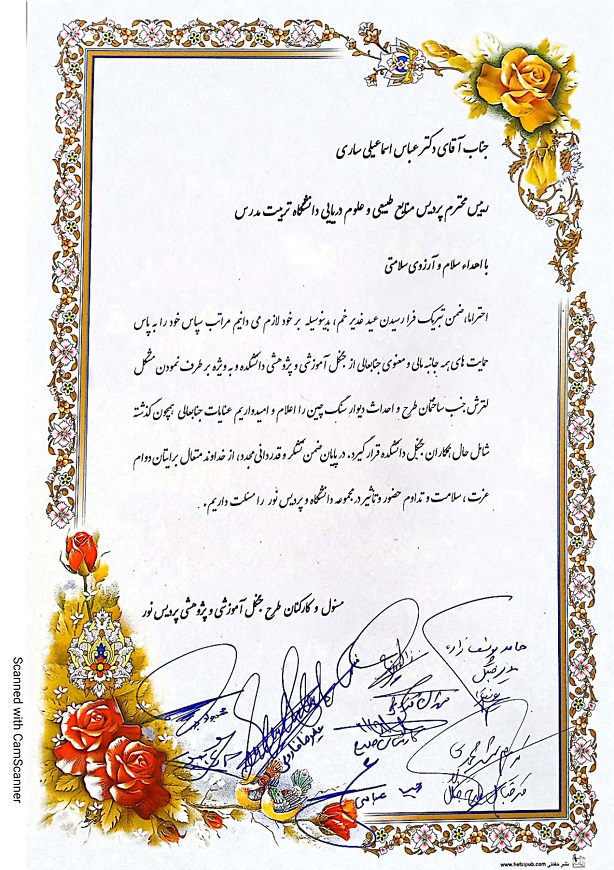 جناب آقای دکتر عباس اسماعیلی ساری
رییس محترم پردیس منابع طبیعی و علوم دریایی دانشگاه تربیت مدرس
با اهداء سلام و آرزوی سلامتی
احتراما، ضمن تبریک فرا رسیدن عید غدیر خم، بدینوسیله بر خود لازم می دانیم مراتب سپاس خود را به پاس
حمایت های همه جانبه مالی و معنوی جنابعالی از جنگل آموزشی و پژوهشی دانشکده و به ویژه بر طرف نمودن مشکل
لغزش جنب ساختمان طرح و احداث دیوار سنگ چین را اعلام و امیدواریم عنایات جنابعالی همچون گذشته
شامل حال همکاران جنگل دانشکده قرار گیرد. در پایان ضمن تشکر و قدردانی مجدد، از خداوند متعال برایتان دوام
عزت، سلامت و تداوم حضور و تاثیر در مجموعه دانشگاه و پردیس نور را مسئلت داریم.
مسئول و کارکنان طرح جنگل آموزشی و پژوهشی پردیس نور
حامد یوسف زاده
مدیر جنگل
حبیب عباسی
Scanned with CamScanner
www.hefzipub.com